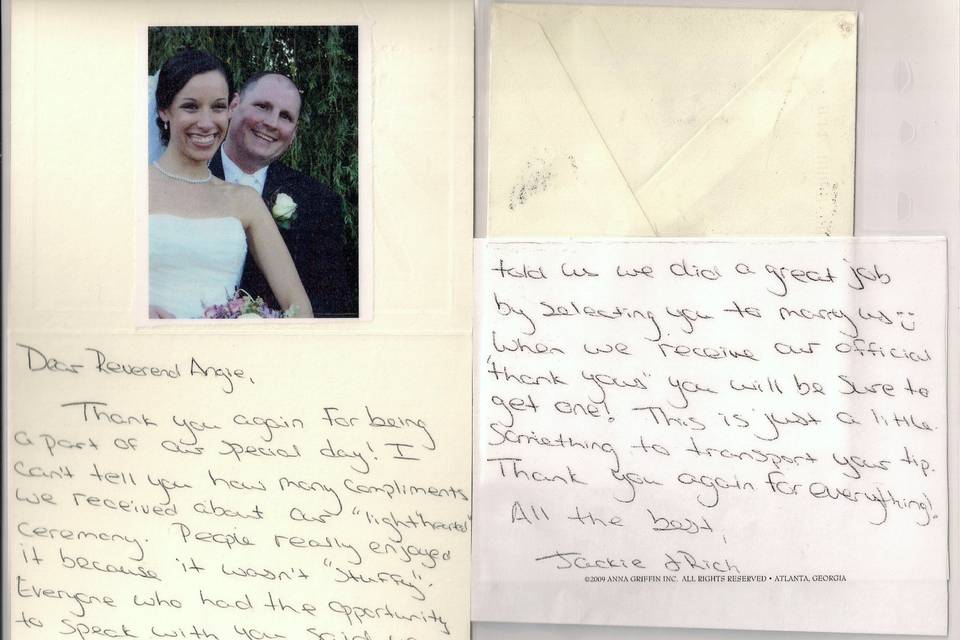 Dear Reverend Angie,
Thank you again for being
a part of our special day! I
can't tell you how many compliments
we received about our "light hearted"
ceremony. People really enjoyed
it because it wasn't "stuffy".
Everyone who had the opportunity
to speak with you said
told us we did a great job
by selecting you to marry us
When we receive our official
"thank yous" you will be sure to
get one! This is just a little
something to transport your tip.
Thank you again for everything!
All the best,
Jackie & Rich
©2009 ANNA GRIFFIN INC. ALL RIGHTS RESERVED • ATLANTA, GEORGIA